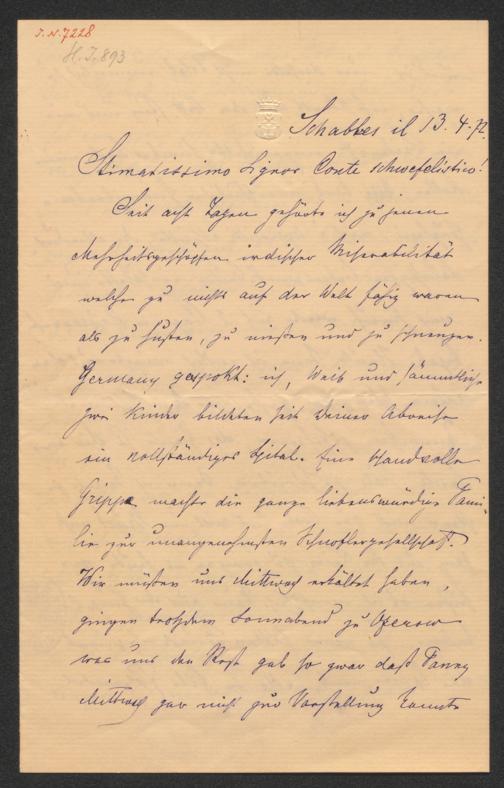 I. N. 7228
H. I. 893
Schabbes il 13. 4. 72.
Stimatissimo Signor Conte schwefelistico!
Seit acht Tagen gehörte ich zu jenen
irdischer Miserabilität
welche zu nichts auf der Welt fähig waren
als zu husten, zu nießen und zu schneuzen.
Germany gespokt: ich, Weib und sämmtliche
zwei Kinder bildeten seit Deiner Abreise
ein vollständiges Spital. Eine
Grippe machte die ganze liebenswürdige Fami-
lie zur unangenehmsten Schnoflergesellschaft.
Wir müßen uns Mittwoch erkältet haben,
gingen trotzdem Sonnabend zu
was uns den Rest gab so zwar daß Fanny
Mittwoch gar nicht zur Vorstellung konnte